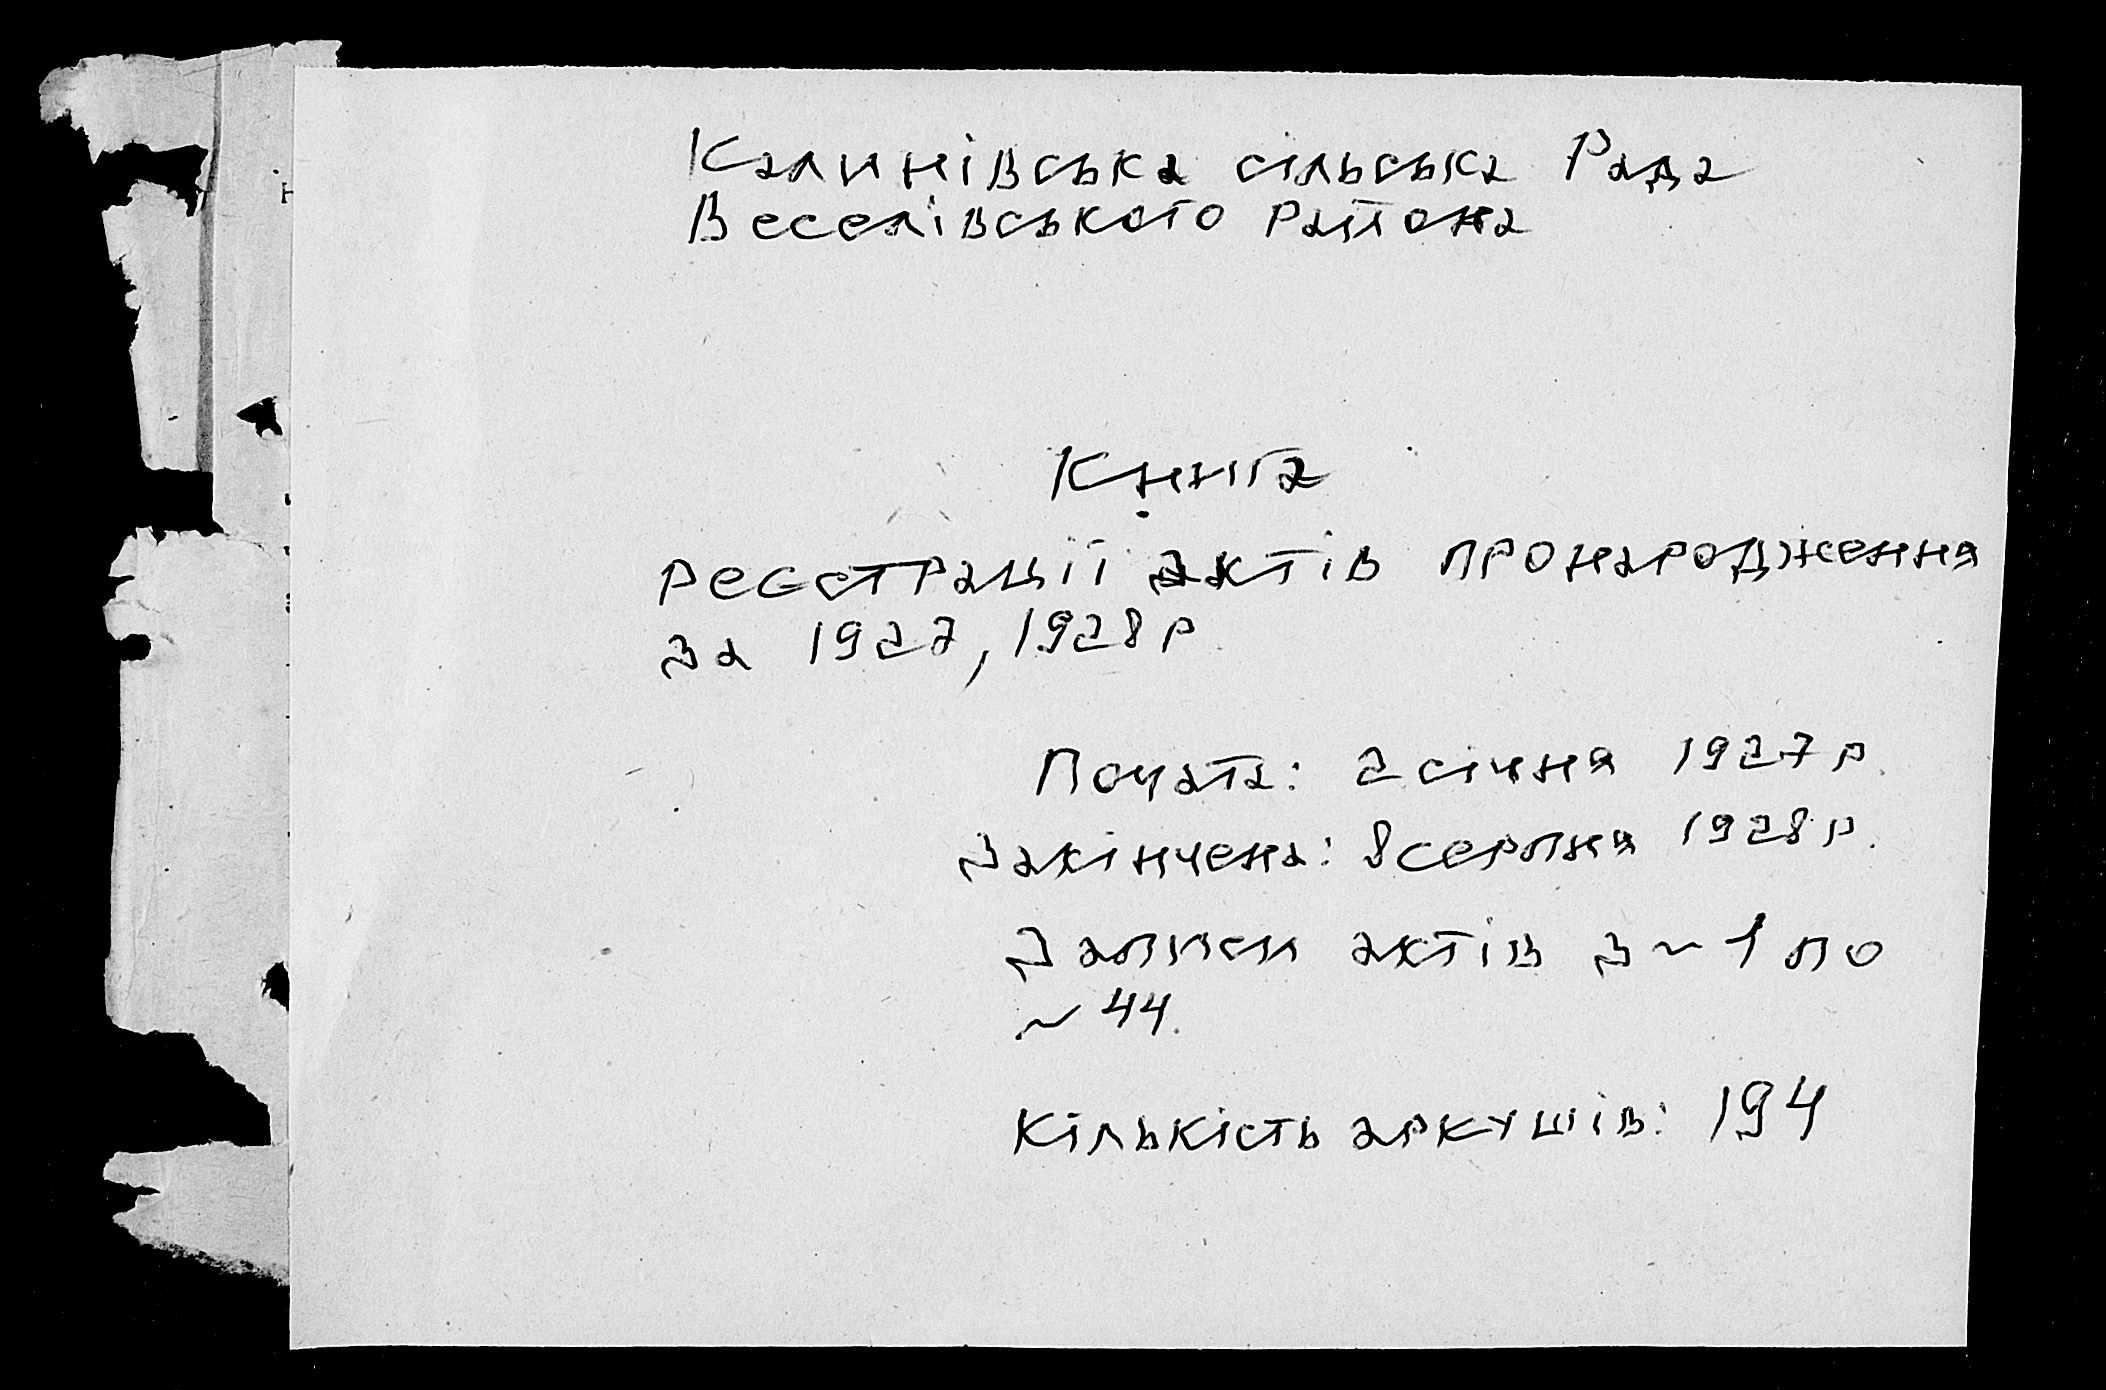 Калинівська сільська Рада
Веселівського района
Книга
реєстрації актів про народження
за 1927, 1928 р
Почата: 2 січня 1927 р.
Закінчена: 8 серпня 1928 р.
Записи актів з ~ 1 по
~ 44.
Кількість аркушів: 194